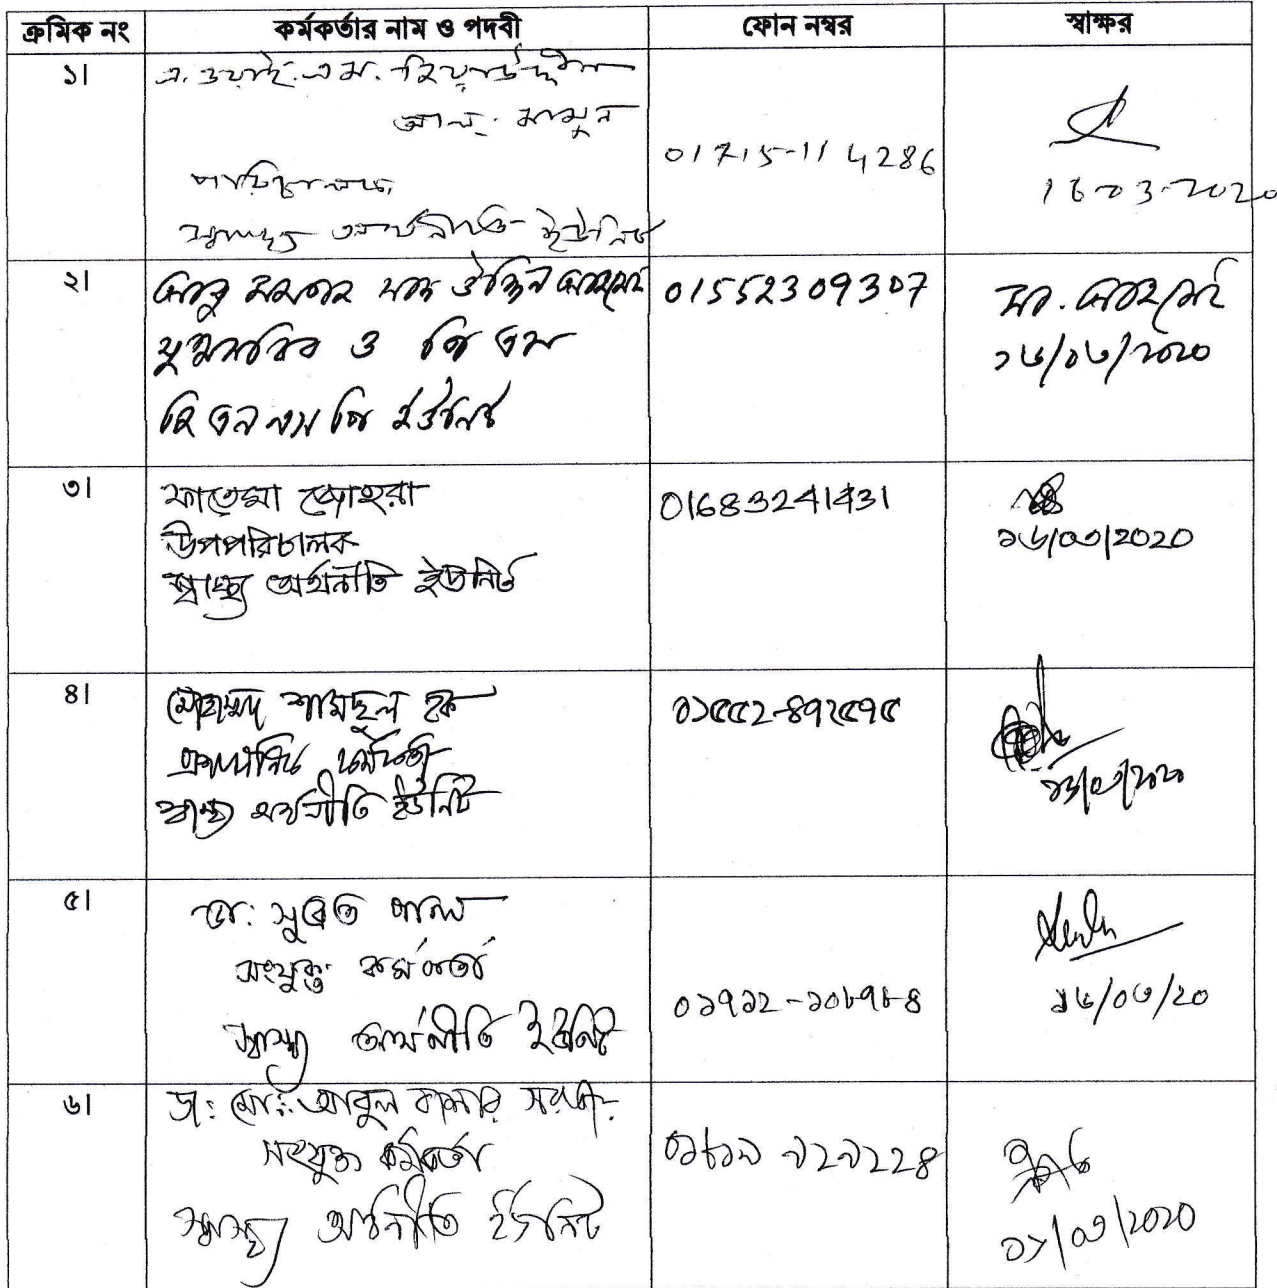 ক্রমিক নং কর্মকর্তার নাম ও পদবী ফোন নম্বর স্বাক্ষর
১।
এ. ওয়াই. এম. জিয়াউদ্দীন
আল- মামুন
পরিচালক
স্বাস্থ্য অর্থনীতি ইউনিট
01715-114286
16-03-2020
২।
আবু মমতাজ সাদ উদ্দিন আহমেদ
যুগ্মসচিব ও পি এম
জি এন এস পি ইউনিট
01552309307
সা. আহমেদ
১৬/০৩/2020
৩।
ফাতেমা জোহরা
উপপরিচালক
স্বাস্থ্য অর্থনীতি ইউনিট
01683241431
১৬/০৩/2020
৪।
মোহাম্মদ শামছুল হক
কর্মকর্তা
স্বাস্থ্য অর্থনীতি ইউনিট
০১৫৫২-৪৭২৫৭৫
১৬/০৩/২০২০
৫।
ডা: সুব্রত পাল
সংযুক্ত কর্মকর্তা
স্বাস্থ্য অর্থনীতি ইউনিট
০১৭১২-১০৮৭৮৪
১৬/০৩/20
৬।
ডা: মো: আবুল বাসার সরকার
সংযুক্ত কর্মকর্তা
স্বাস্থ্য অর্থনীতি ইউনিট
০১৮১৯ ২২৪
/০৩/2020